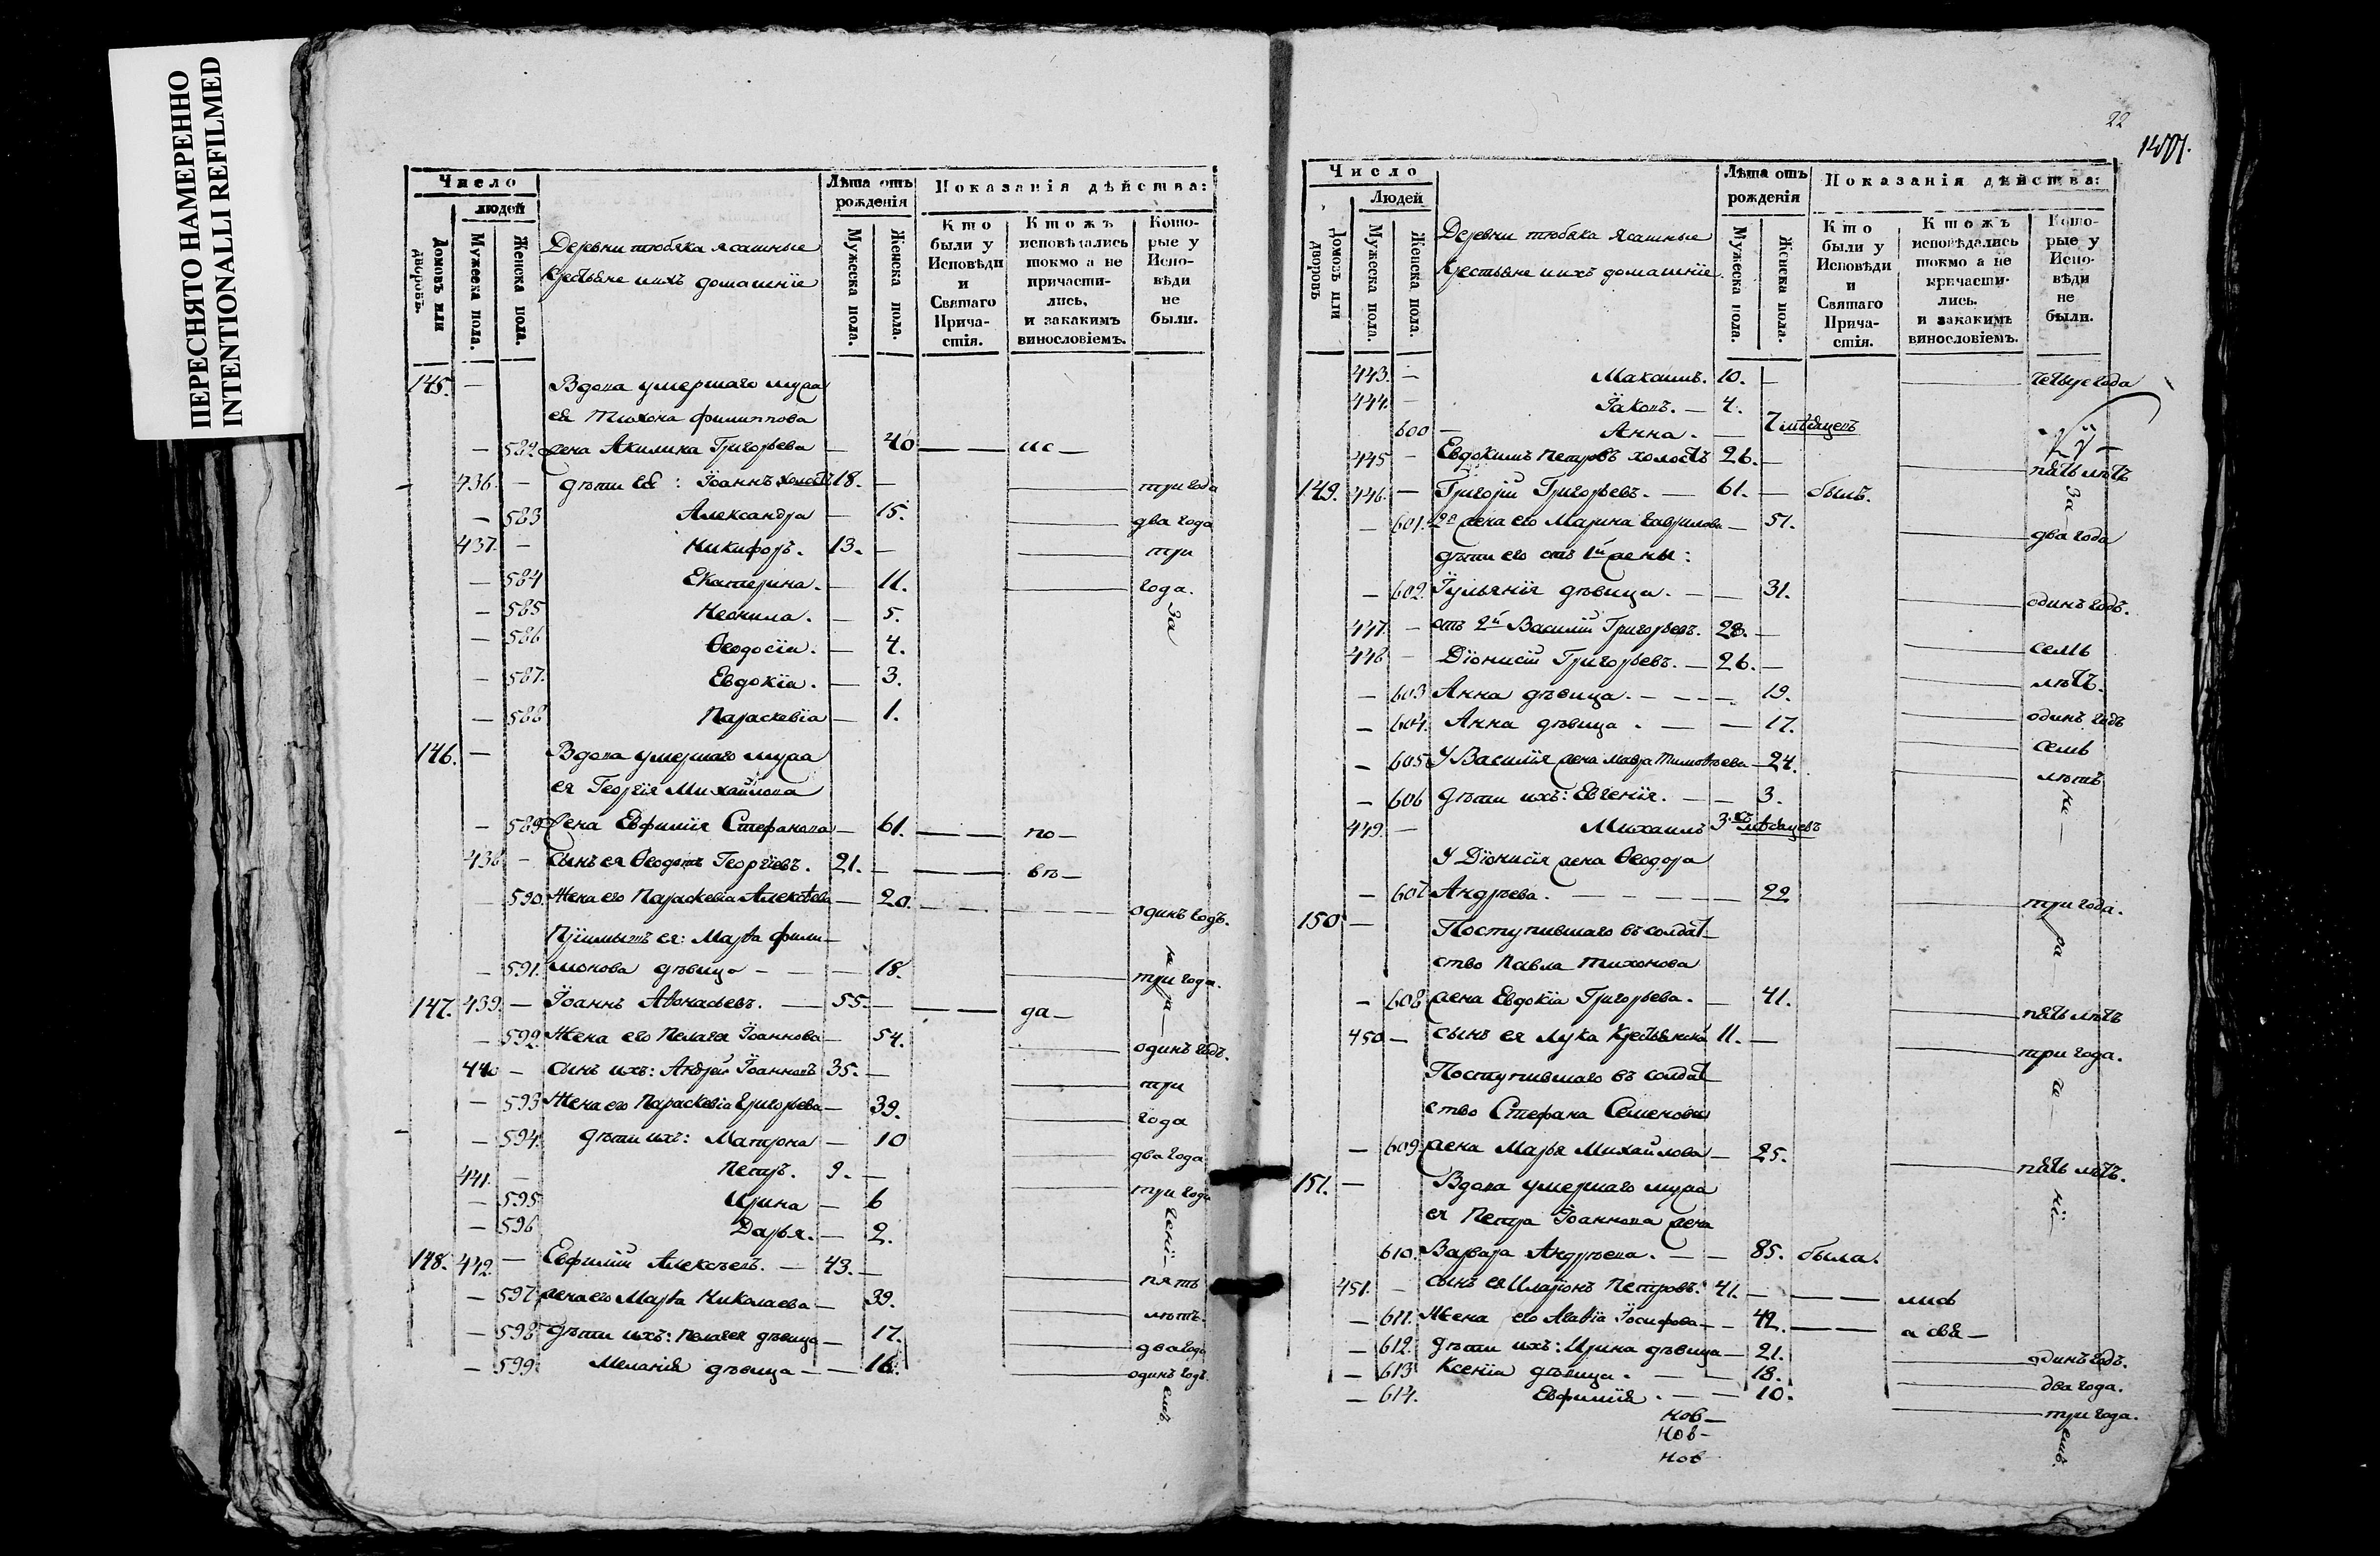 ПЕРЕСНЯТО НАМЕРЕННО
INTENTIONALLI REFILMED
Число
людей
Домовъ или дворовъ.
Мужеска пола.
Женска пола.
Деревни тюбяка ясашные
Крестьяне и ихъ домашнїе
Лѣта отъ рожденія
Мужеска пола.
Женска пола.
Показанія дѣйства:
Кто были у Исповѣди и Святаго Прича-стія.
Ктожъ исповѣдались токмо а не причасти-лись, и закакимъ винословіемъ.
Кото-рые у Испо-вѣди не были.
145. — Вдова умершаго мужа
ея Тихона Филиппова
— 582 жена Акилина Григорьева — 40 — — ис —
436. — дѣти ея: Іоаннъ холостъ 18. — три года
— 583 Александра — 15. два года
437. — Никифоръ. 13. — три
— 584 Екатерина. — 11. года.
— 585 Неонила. — 5. За
— 586 Ѳеодосіа. — 4.
— 587. Евдокїа. — 3.
— 588 Параскевїа — 1.
146. — Вдова умершаго мужа
ея Георгїя Михайлова
— 589 жена Евфимїя Стефанова — 61. — — по —
438 — сынъ ея Ѳеодотъ Георгїевъ. 21. — — — вѣ —
— 590. Жена его Параскевїа Алексѣева — 20. — — — одинъ годъ.
Прїимышъ ея: Марѳа Фили—
— 591. монова дѣвица — — — 18. три года.
147. 439. — Іоаннъ Аѳонасьевъ. — 55. — — — да —
— 592. Жена его Пелагея Іоаннова — 54. одинъ годъ.
440 — сынъ ихъ: Андрей Іоанновъ 35. — три
— 593 Жена его Параскевїа Григорьева — 39. года
— 594. дѣти ихъ: Матрона — 10 два года
441. — Петръ. 9. — три года
— 595 Ирина — 6
— 596 Дарья. — 2.
148. 442. — Евфимїй Алексѣевъ. — 43. — пять
— 597 жена его Марѳа Николаева — 39. лѣтъ.
— 598 дѣти ихъ: Пелагея дѣвица — 17. два года
— 599. Меланїя дѣвица — — 16. одинъ годъ.
22
Число
Людей
Домовъ или дворовъ
Мужеска пола.
Женска пола.
Деревни тюбяка Ясашные
Крестьяне и ихъ домашнїе.
Лѣта отъ рожденія
Мужеска пола.
Женска пола.
Показанія дѣйства:
Кто были у Исповѣди и Святаго Прича-стія.
Ктожъ исповѣдались токмо а не причасти-лись. и закакимъ винословіемъ.
Кото-рые у Испо-вѣди не были.
443. — Максимъ. 10. — четыре года
444. — Іаковъ. — 4.
600 — Анна. — 7 мѣсяцевъ
445 — Евдокимъ Петровъ холостъ 26. — пять лѣтъ
149. 446. — Григорїй Григорьевъ. — 61. — былъ. За
— 601. 2я жена его Марина Гаврилова — 51. два года
дѣти его отъ 1й жены:
— 602. Іульянїя дѣвица. — — 31. одинъ годъ.
447. — отъ 2й Василїй Григорьевъ. 28. — семь
448 — Дїонисїй Григорьевъ. — 26. — лѣтъ.
— 603 Анна дѣвица. — — — 19. одинъ годъ
— 604. Анна дѣвица. — — 17. семь
— 605 У Василїя жена Мавра Тимоѳѣева — 24. лѣтъ
— 606 дѣти ихъ: Евгенїя. — — 3.
449. — Михаилъ 3хъ мѣсяцевъ
У Дїонисїя жена Ѳеодора
— 607 Андрѣева. — — — — 22 три года.
150 — Поступившаго въ солдат—
ство Павла Тихонова
— 608 жена Евдокїа Григорьева. — 41. пять лѣтъ
450 — сынъ ея Лука 11. — три года.
Поступившаго въ солдат
ство Стефана Семенова
— 609. жена Марья Михайлова — 25. пять лѣтъ.
151. — Вдова умершаго мужа
ея Петра Іоаннова жена
610. Варвара Андрѣева. — — 85. была.
451. — сынъ ея Иларїонъ Петровъ. 41. — — — лись
— 611. Жена его Агаѳїа Іосифова — 42. — — а свя —
— 612. дѣти ихъ: Ирина дѣвица — 21. одинъ годъ.
— 613 Ксенїа дѣвица. — — 18. два года.
— 614. Евфимїя. — — 10. три года.
Нов —
Нов —
Нов